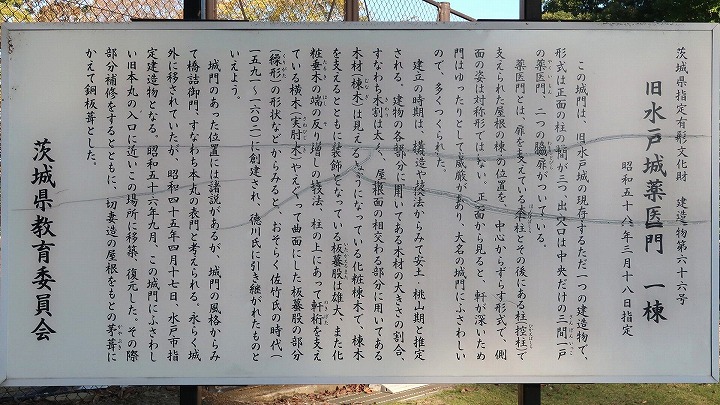 茨城県指定有形文化財　建造物第六十六号
旧水戸城薬医門　一棟
昭和五十八年三月十八日指定
この城門は、旧水戸城の現存するただ一つの建造物で、
形式は正面の柱の間が三つ、出入口は中央だけの三間一戸
の薬医門、二つの脇扉がついている。
薬医門とは、扉を支えている本柱とその後にある柱（控柱）で
支えられた屋根の棟の位置を、中心からずらす形式で、側
面の姿は対称形ではない。正面から見ると、軒が深いため
門はゆったりとして威厳があり、大名の城門にふさわしい
ので、多くつくられた。
建立の時期は、構造や技法からみて安土・桃山期と推定
される。建物の各部分に用いてある木材の大きさの割合、
すなわち木割は太く、屋根面の相交わる部分に用いてある
木材（棟木）は見えるようになっている化粧棟木で、棟木
を支えるとともに装飾となっている板蟇股は雄大、また化
粧垂木の端の反り増しの技法、柱の上にあって軒桁を支え
ている横木（実肘木）やえぐって曲面にした板蟇股の部分
（繰形）の形状などからみると、おそらく佐竹氏の時代（一
五九一〜一六〇二）に創建され、徳川氏に引き継がれたものと
いえよう。
城門のあった位置には諸説があるが、城門の風格からみ
て橋詰御門、すなわち本丸の表門と考えられる。永らく城
外に移されていたが、昭和四十五年四月十七日、水戸市指
定建造物となる。昭和五十六年九月、この城門にふさわし
い旧本丸の入口に近いこの場所に移築、復元した。その際
部分補修をするとともに、切妻造の屋根をもとの茅葺に
かえて銅板葺とした。
茨城県教育委員会